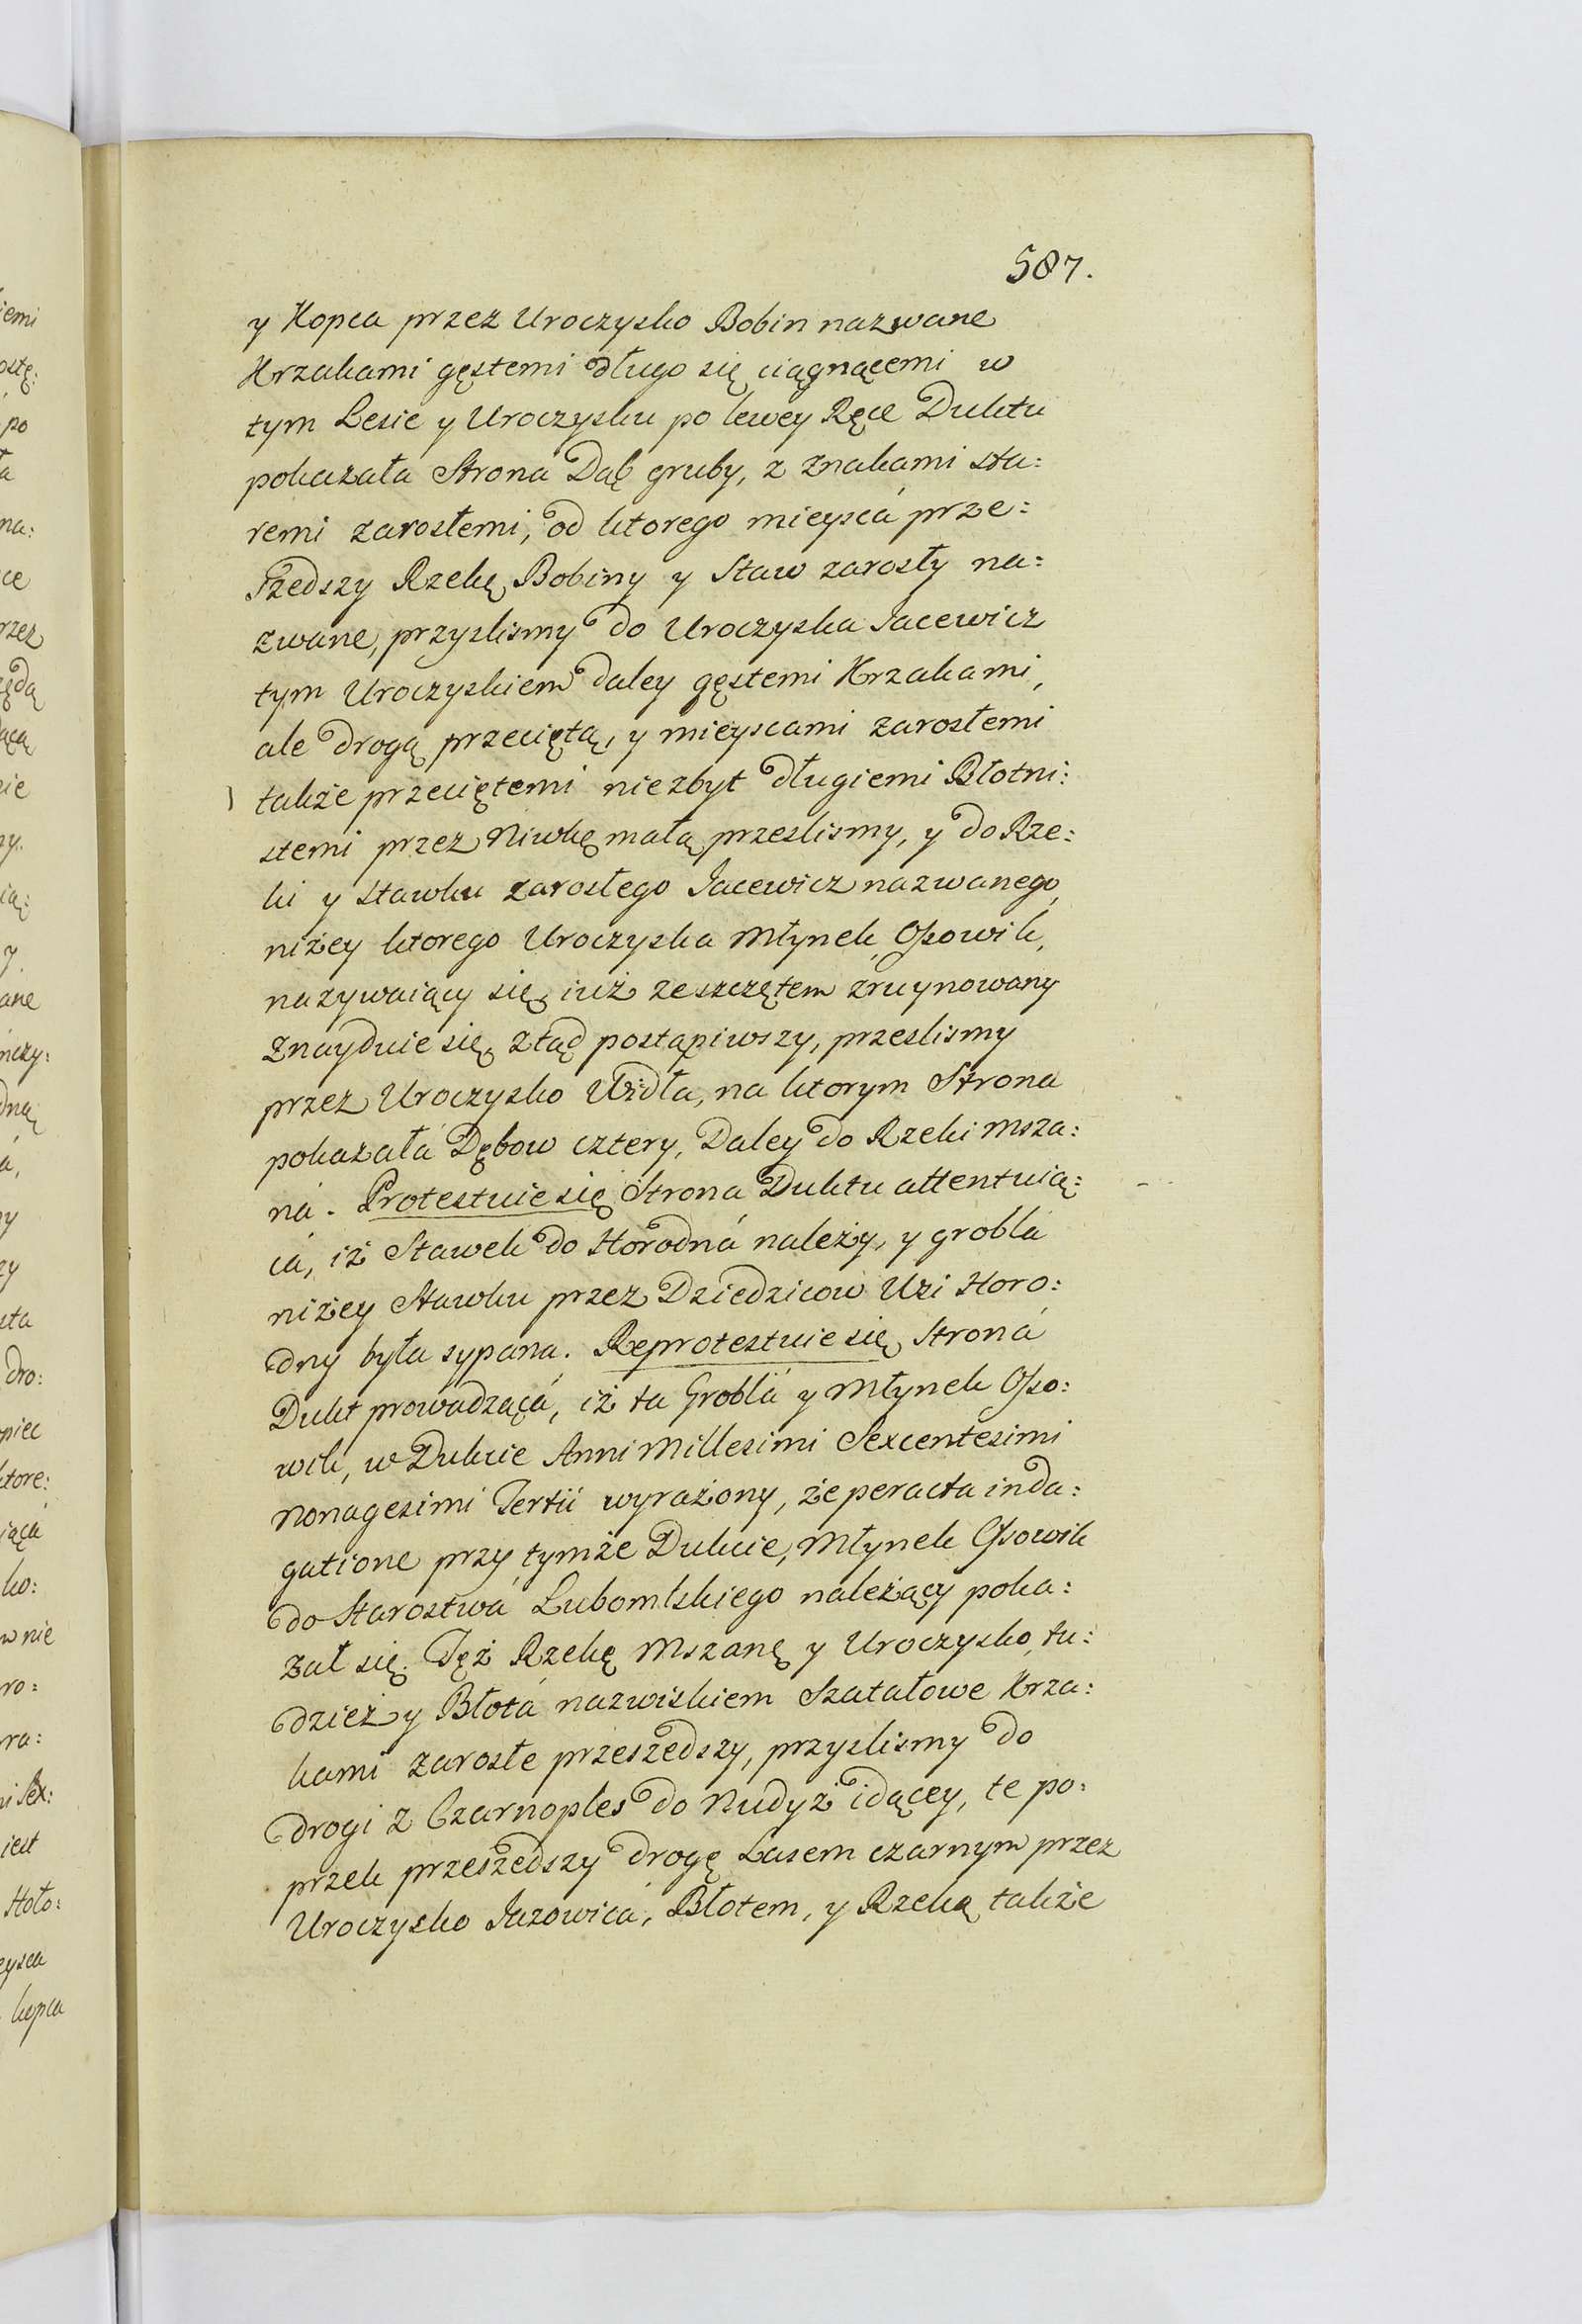 587.
y Kopca przez Uroczysko Bobin nazwane
Krzakami gęstemi długo się ciągnącemi w
tym Lesie y Uroczysku po lewey Ręce Duktu
pokazała Strona Dąb gruby, z znakami sta:
remi zarosłemi, od ktorego mieyscá prze:
szedszy Rzekę Bobiny y Staw zarosły na:
zwane, przyslismy do Uroczyska Jacewicz
tym Uroczyskiem daley gęstemi Krzakami,
ale drogą przeciętą, y mieyscami zarosłemi
także przeciętemi niezbyt długiemi Błotni:
stemi przez Niwkę małą przeslismy, y do Rze:
ki y stawku zarosłego Jacewicz nazwanego,
niżey ktorego Uroczyska Młynek Ossowik,
nazywaiący się iuż zeszczętem zruynowany
znayduie się, ztąd postąpiwszy, przeslismy
przez Uroczysko Widła, na ktorym Strona
pokazałá Dębow cztery, Daley do Rzeki Msza:
ná. Protestuie się Strona Duktu attentuią:
cá, iż Stawek do Horodná należy, y groblá
niżey Stawku przez Dziedzicow Wsi Horo:
dny była sypana. Reprotestuie się Stroná
Dukt prowadzącá, iż ta Groblá y Młynek Osso:
wik, w Dukcie Anni Millesimi Sexcentesimi
Nonagesimi Tertii wyrażony, że peracta inda:
gatione przy tymże Dukcie, Młynek Ossowik
do Starostwá Lubomlskiego należący poka:
zał się. Tęż Rzekę Mszanę y Uroczysko, tu:
dzież y Błotá nazwiskiem Szatałowe Krza:
kami zarosłe przeszedszy, przyslismy do
drogi z Czarnoples do Nudyż idącey, te po:
przek przeszedszy drogę Lasem czarnym przez
Uroczysko Jazowicá, Błotem, y Rzeką także